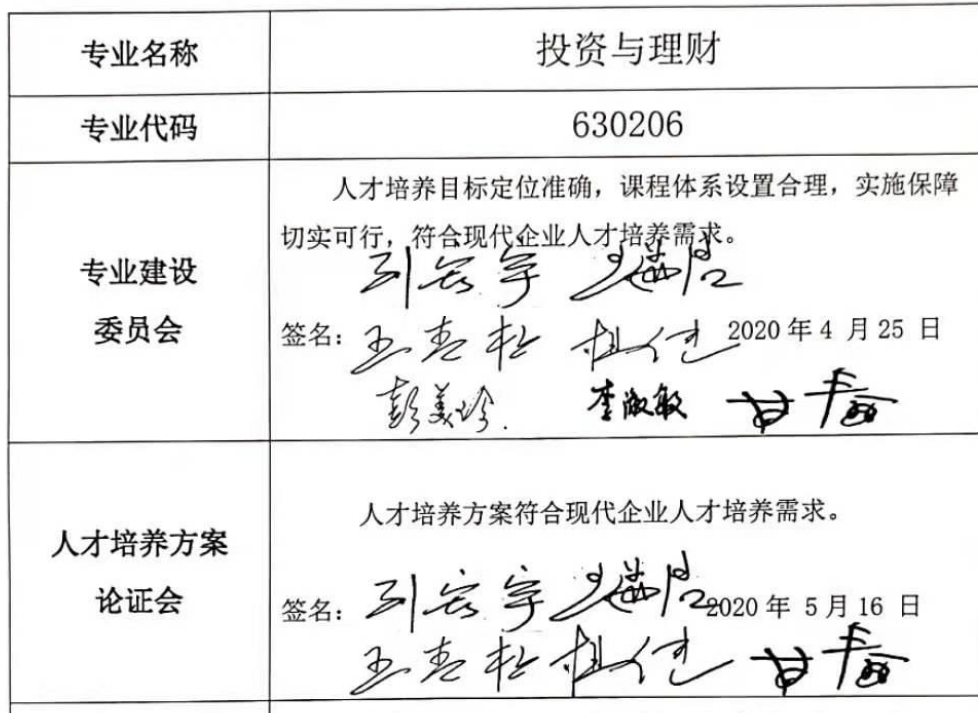 专业名称
投资与理财
专业代码
630206
专业建设
委员会
人才培养目标定位准确，课程体系设置合理，实施保障
切实可行，符合现代企业人才培养需求。
签名：
2020 年 4 月 25 日
彭美珍 李淑敏
人才培养方案
论证会
人才培养方案符合现代企业人才培养需求。
签名：
2020 年 5 月 16 日